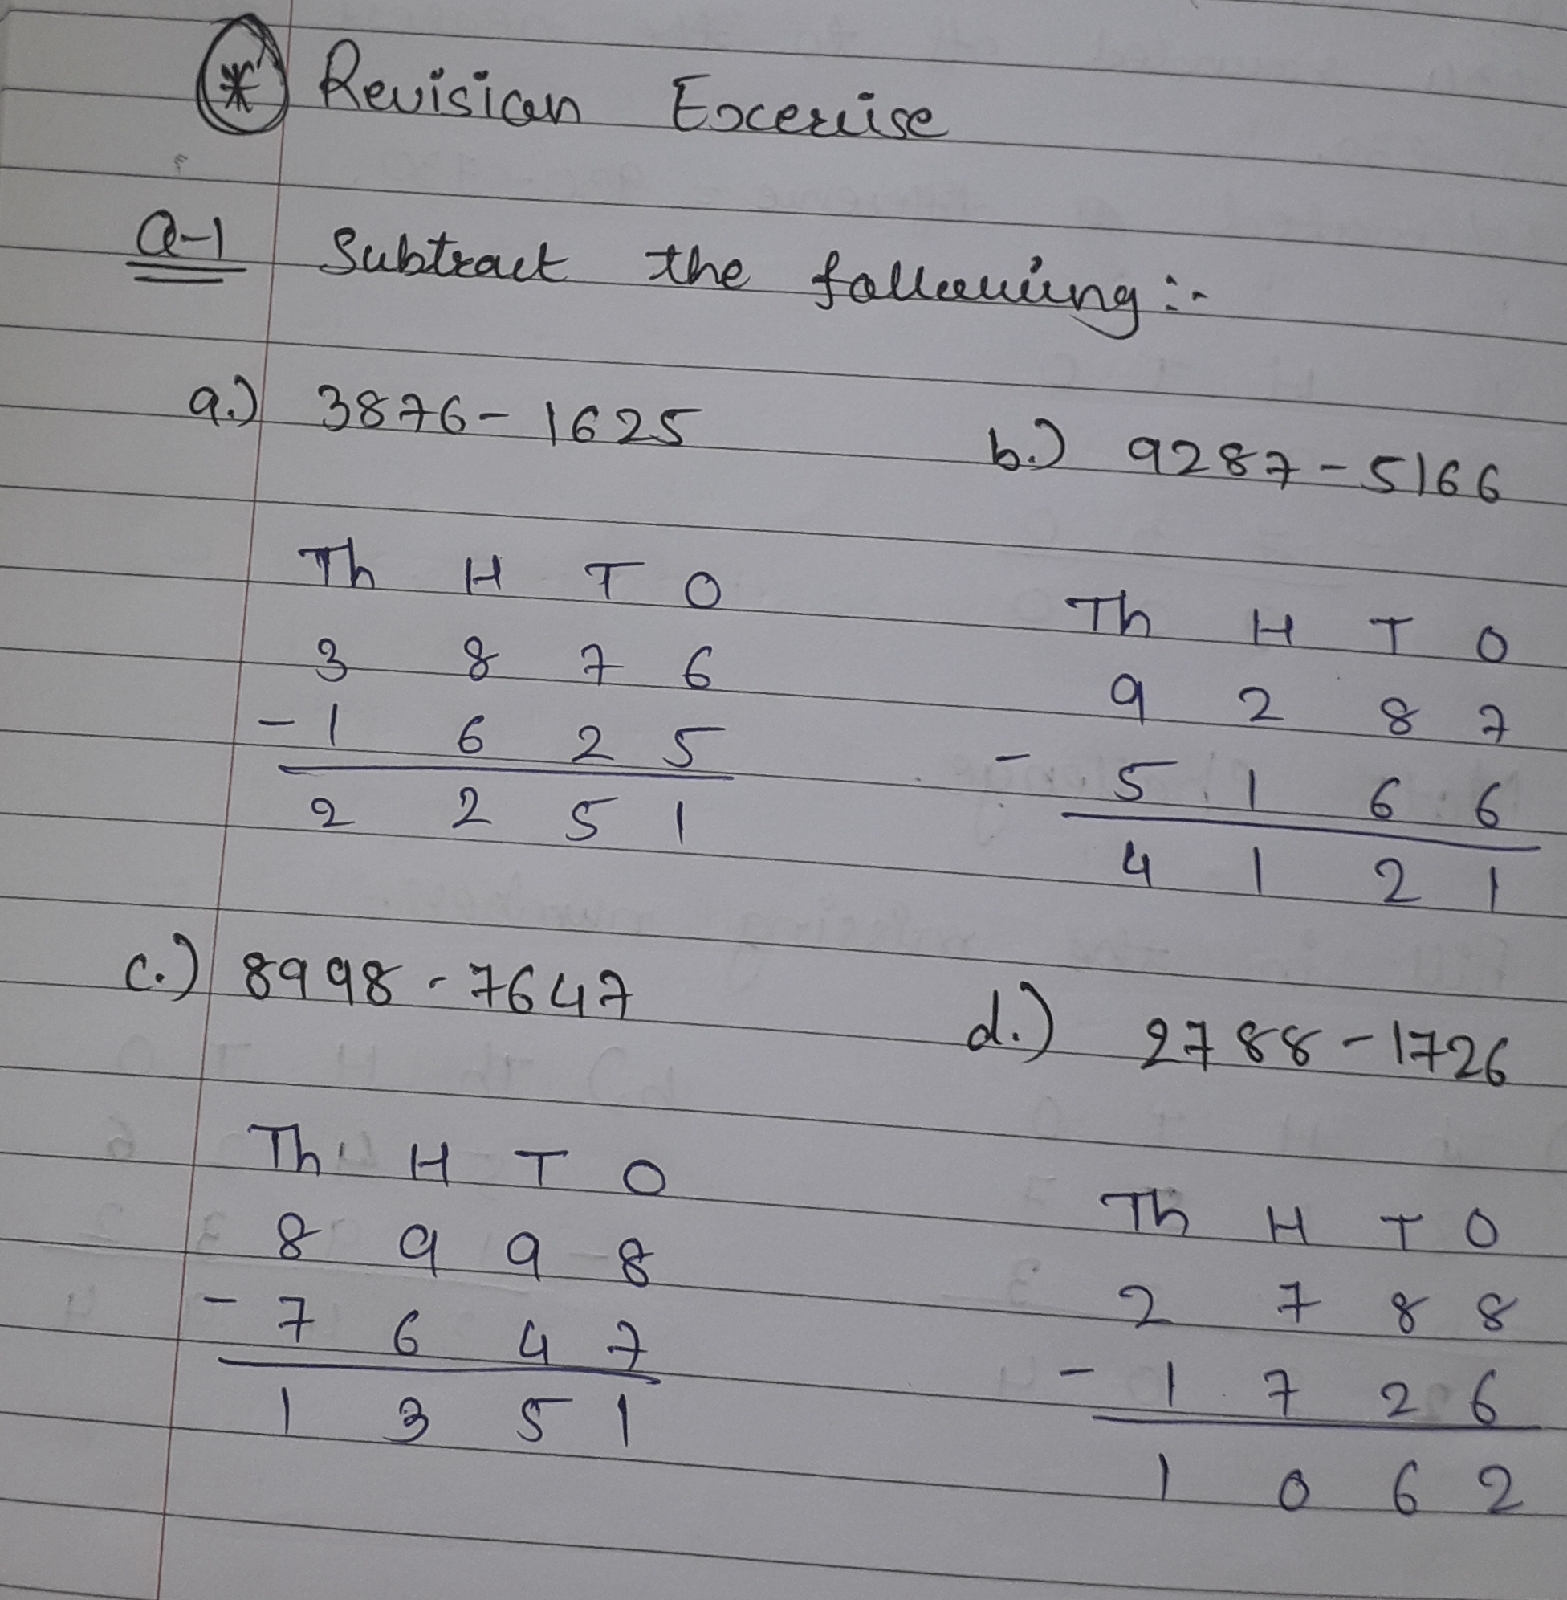 * Revision Excercise
Q-1 Subtract the following :-
a.) 3876 - 1625
b.) 9287 - 5166
Th H T O
3 8 7 6
- 1 6 2 5
2 2 5 1
Th H T O
9 2 8 7
- 5 1 6 6
4 1 2 1
c.) 8998 - 7647
d.) 2788 - 1726
Th H T O
8 9 9 8
- 7 6 4 7
1 3 5 1
Th H T O
2 7 8 8
- 1 7 2 6
1 0 6 2